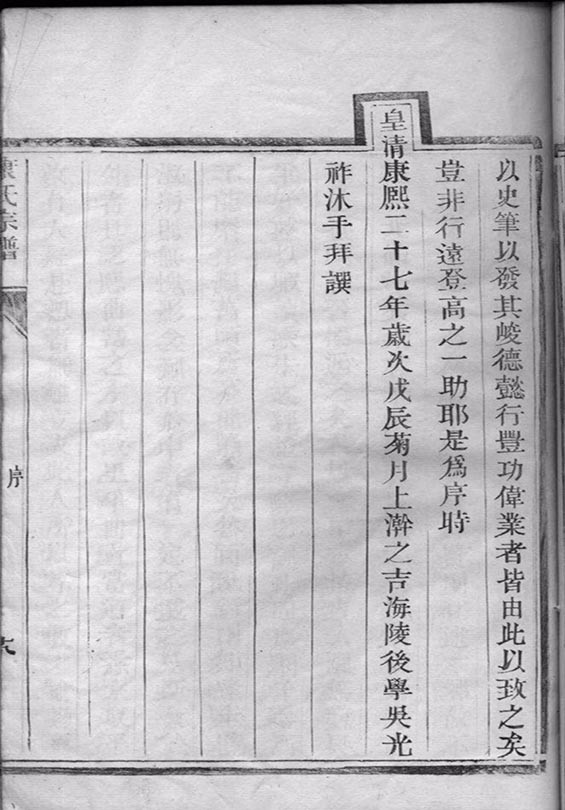 以史筆以發其峻德懿行豐功偉業者皆由此以致之矣
豈非行遠登高之一助耶是爲序時
皇清康熙二十七年歲次戊辰菊月上澣之吉海陵後學吳光
祚沐手拜譔
氏宗譜
序